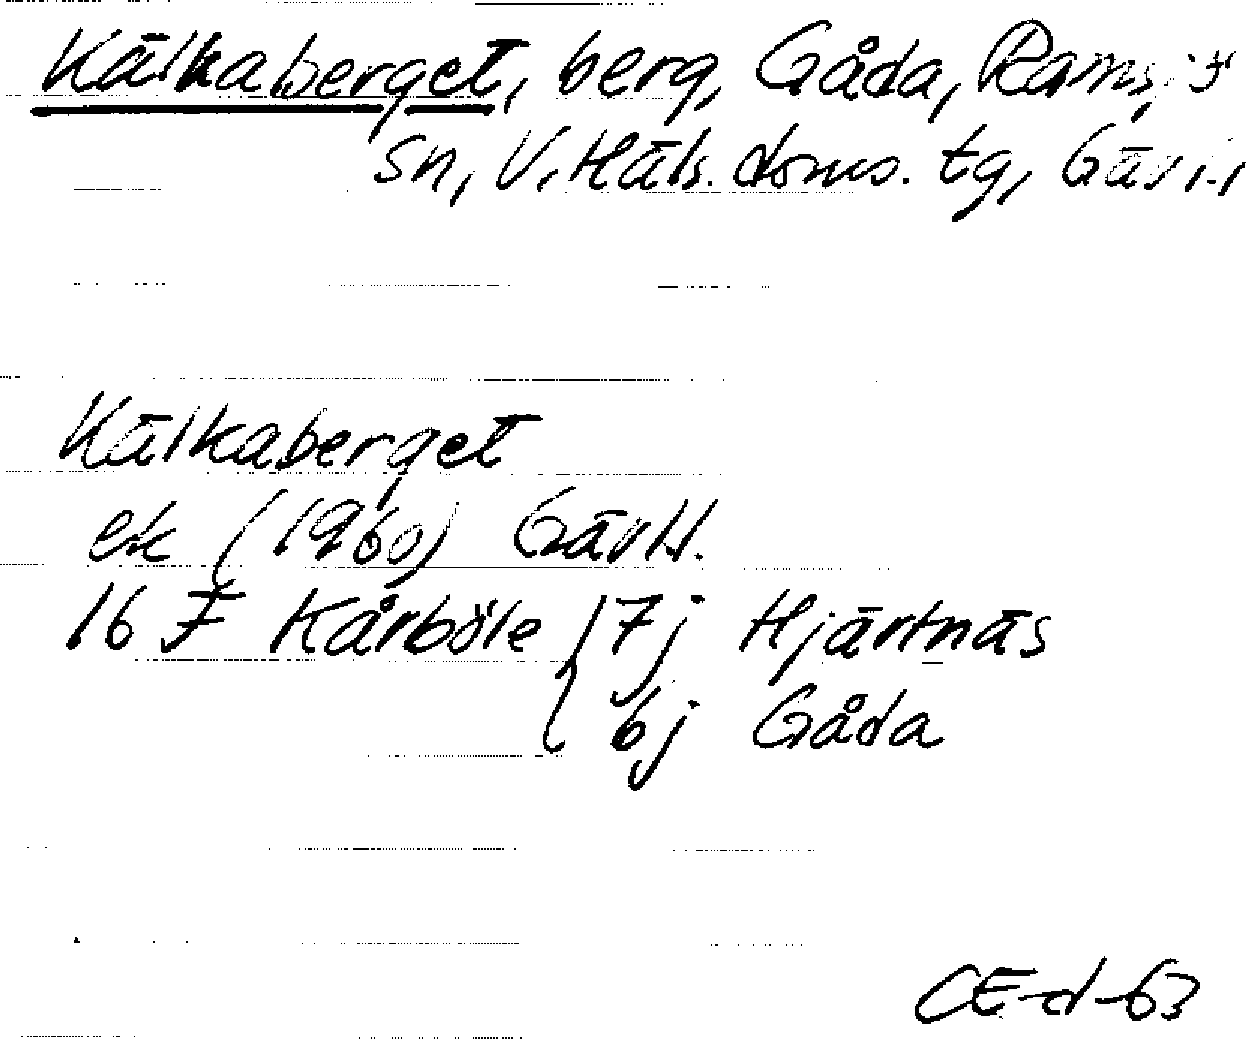 Kälkaberget, berg, Gåda, Ramsjö
sn, V. Häls. doms. tg, Gävl.
Kälkaberget
ek (1960) Gävl.
16 F Kårböle { 7j Hjärtnäs
6j Gåda
CE-d-63